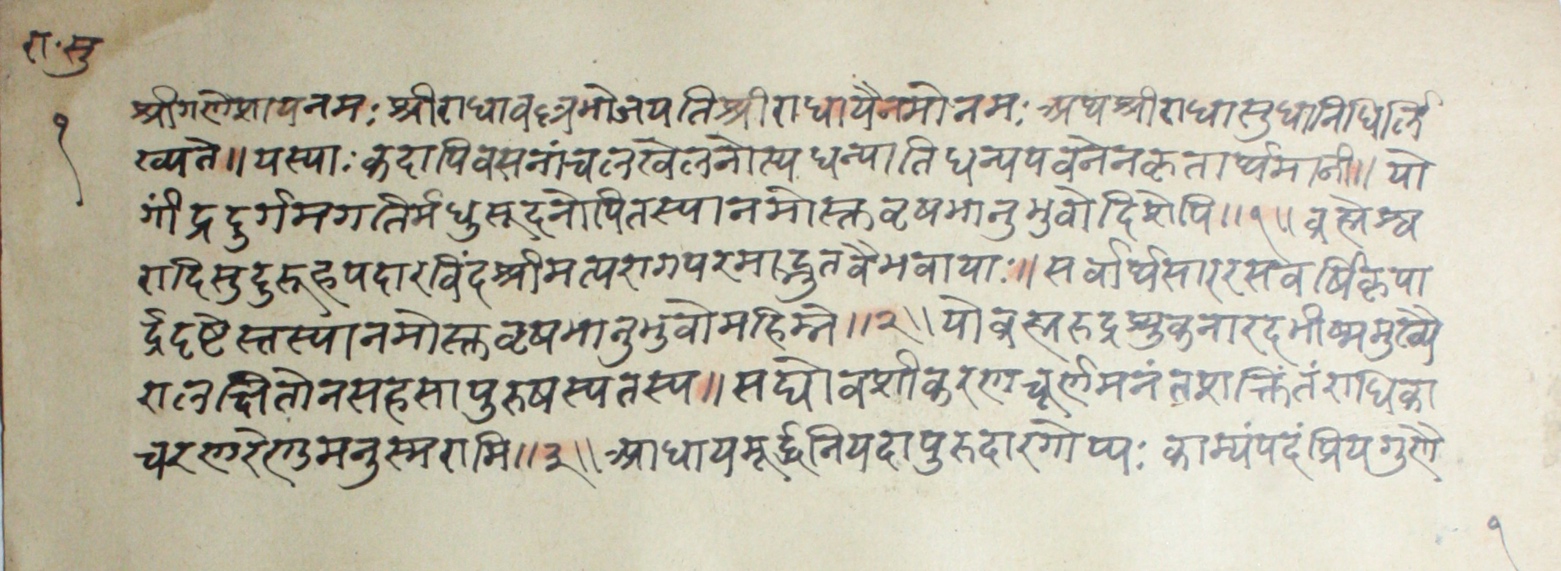 रा॰सु
१
श्रीगणेशायनमः श्रीराधावल्लभोजयति श्रीराधायैनमोनमः अथश्रीराधासुधानिधिर्लि
ख्यते॥ यस्याः कदापिवसनांचलखेलनोत्थ धन्यातिधन्यपवनेनकृतार्थमानी॥ यो
गींद्रदुर्गमगतिर्मधुसूदनोपितस्यानमोस्तुवृषभानुभुवोदिशेपि॥१॥ ब्रह्मेश्व
रादिसुदुरूहपदारविंदश्रीमत्परागपरमाद्भुतवैभवायाः॥ सर्वार्थसाररसवर्षिकृपा
र्द्रदृष्टेस्तस्यानमोस्तुवृषभानुभुवोमहिम्ने॥२॥ योब्रह्मरुद्रशुकनारदभीष्ममुख्यै
रालक्षितोनसहसापुरुषस्यतस्य॥ सद्योवशीकरणचूर्णमनंतशक्तिंतंराधिका
चरणरेणुमनुस्मरामि॥३॥ आधायमूर्द्धनियदापुरुदारगोप्यः काम्यंपदंप्रियगुणै
१